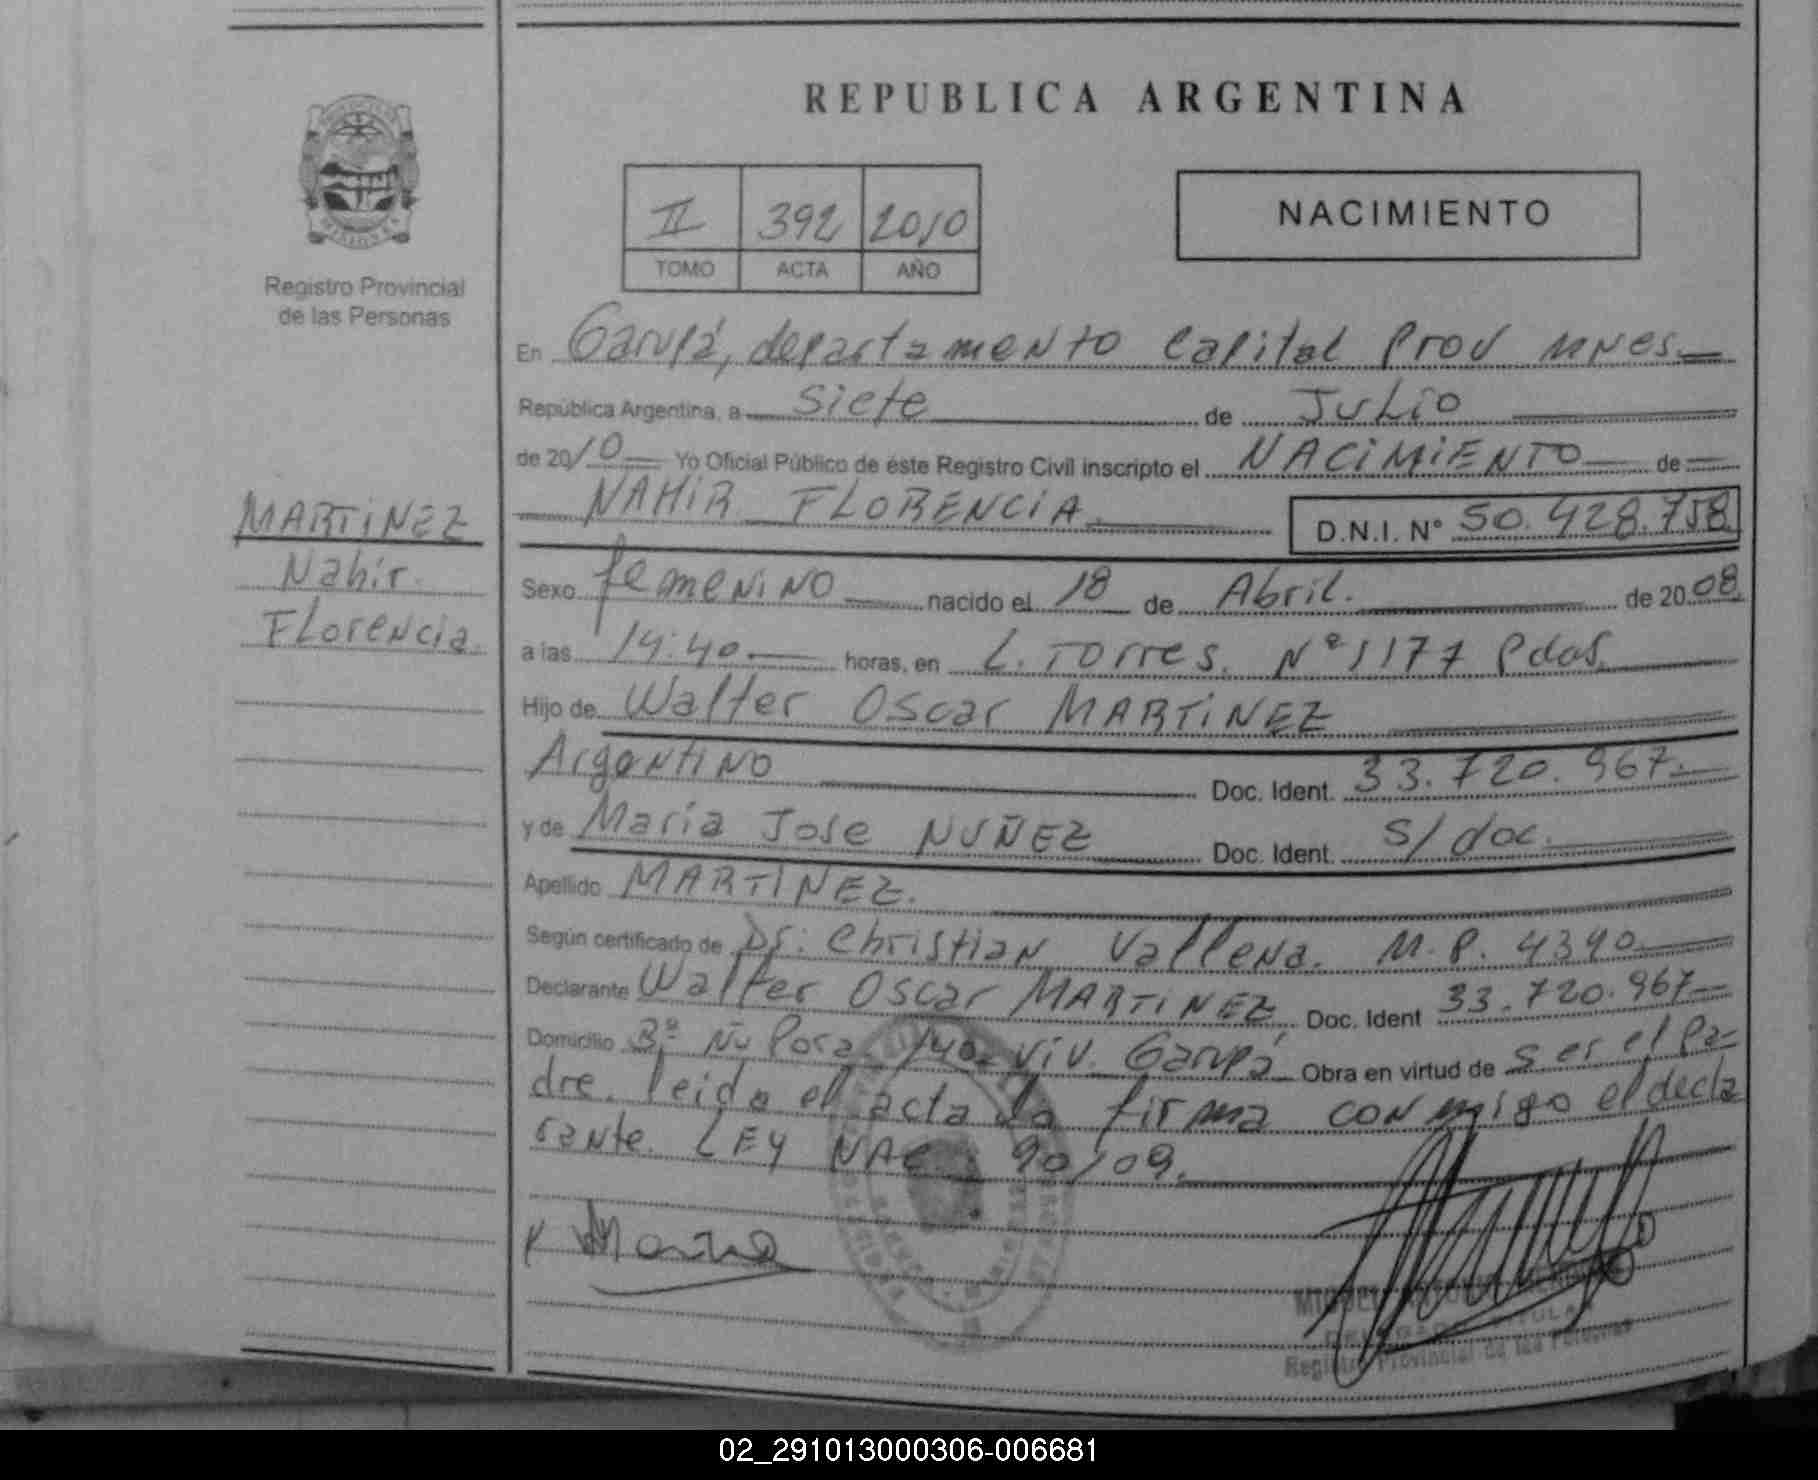 REPUBLICA ARGENTINA
II 392 2010
TOMO ACTA AÑO
NACIMIENTO
Registro Provincial
de las Personas
MARTINEZ
Nahir
Florencia.
En Garupá, departamento Capital Prov mnes.
República Argentina, a siete de Julio
de 2010 Yo Oficial Público de éste Registro Civil inscripto el NACIMIENTO de
NAHIR FLORENCIA. D.N.I. Nº 50.428.758
Sexo femenino nacido el 18 de Abril. de 2008
a las 14:40 horas, en L. Torres. Nº 1177 Pdas.
Hijo de Walter Oscar MARTINEZ
Argentino Doc. Ident. 33.720.967.
y de María Jose NUÑEZ Doc. Ident. s/doc.
Apellido MARTINEZ.
Según certificado de Dr: Christian Vallena. M.P. 4340
Declarante Walter Oscar MARTINEZ Doc. Ident 33.720.967
Domicilio Bº Ñu Pora 140 viv. Garupá Obra en virtud de ser el Pa-
dre. leida el acta la firma conmigo el decla
rante. LEY NAC. 90/09.
Registro Provincial de las Personas
02_291013000306-006681